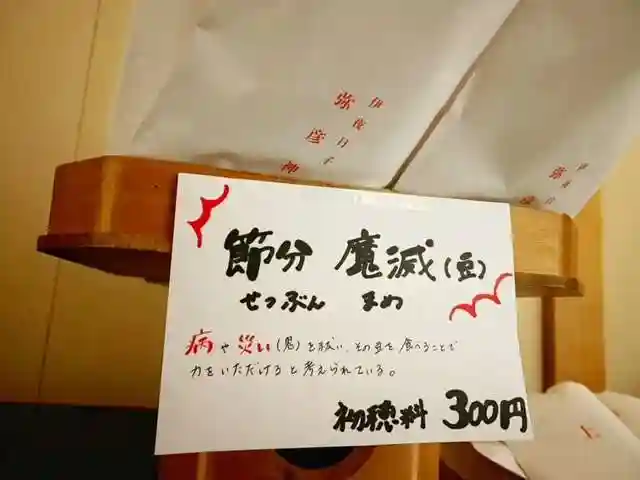 伊夜日子
弥彦神
節分 魔滅(豆)
せつぶん まめ
病や災い(鬼)を祓い、その豆を食べることで
力をいただけると考えられている。
初穂料 300円
上